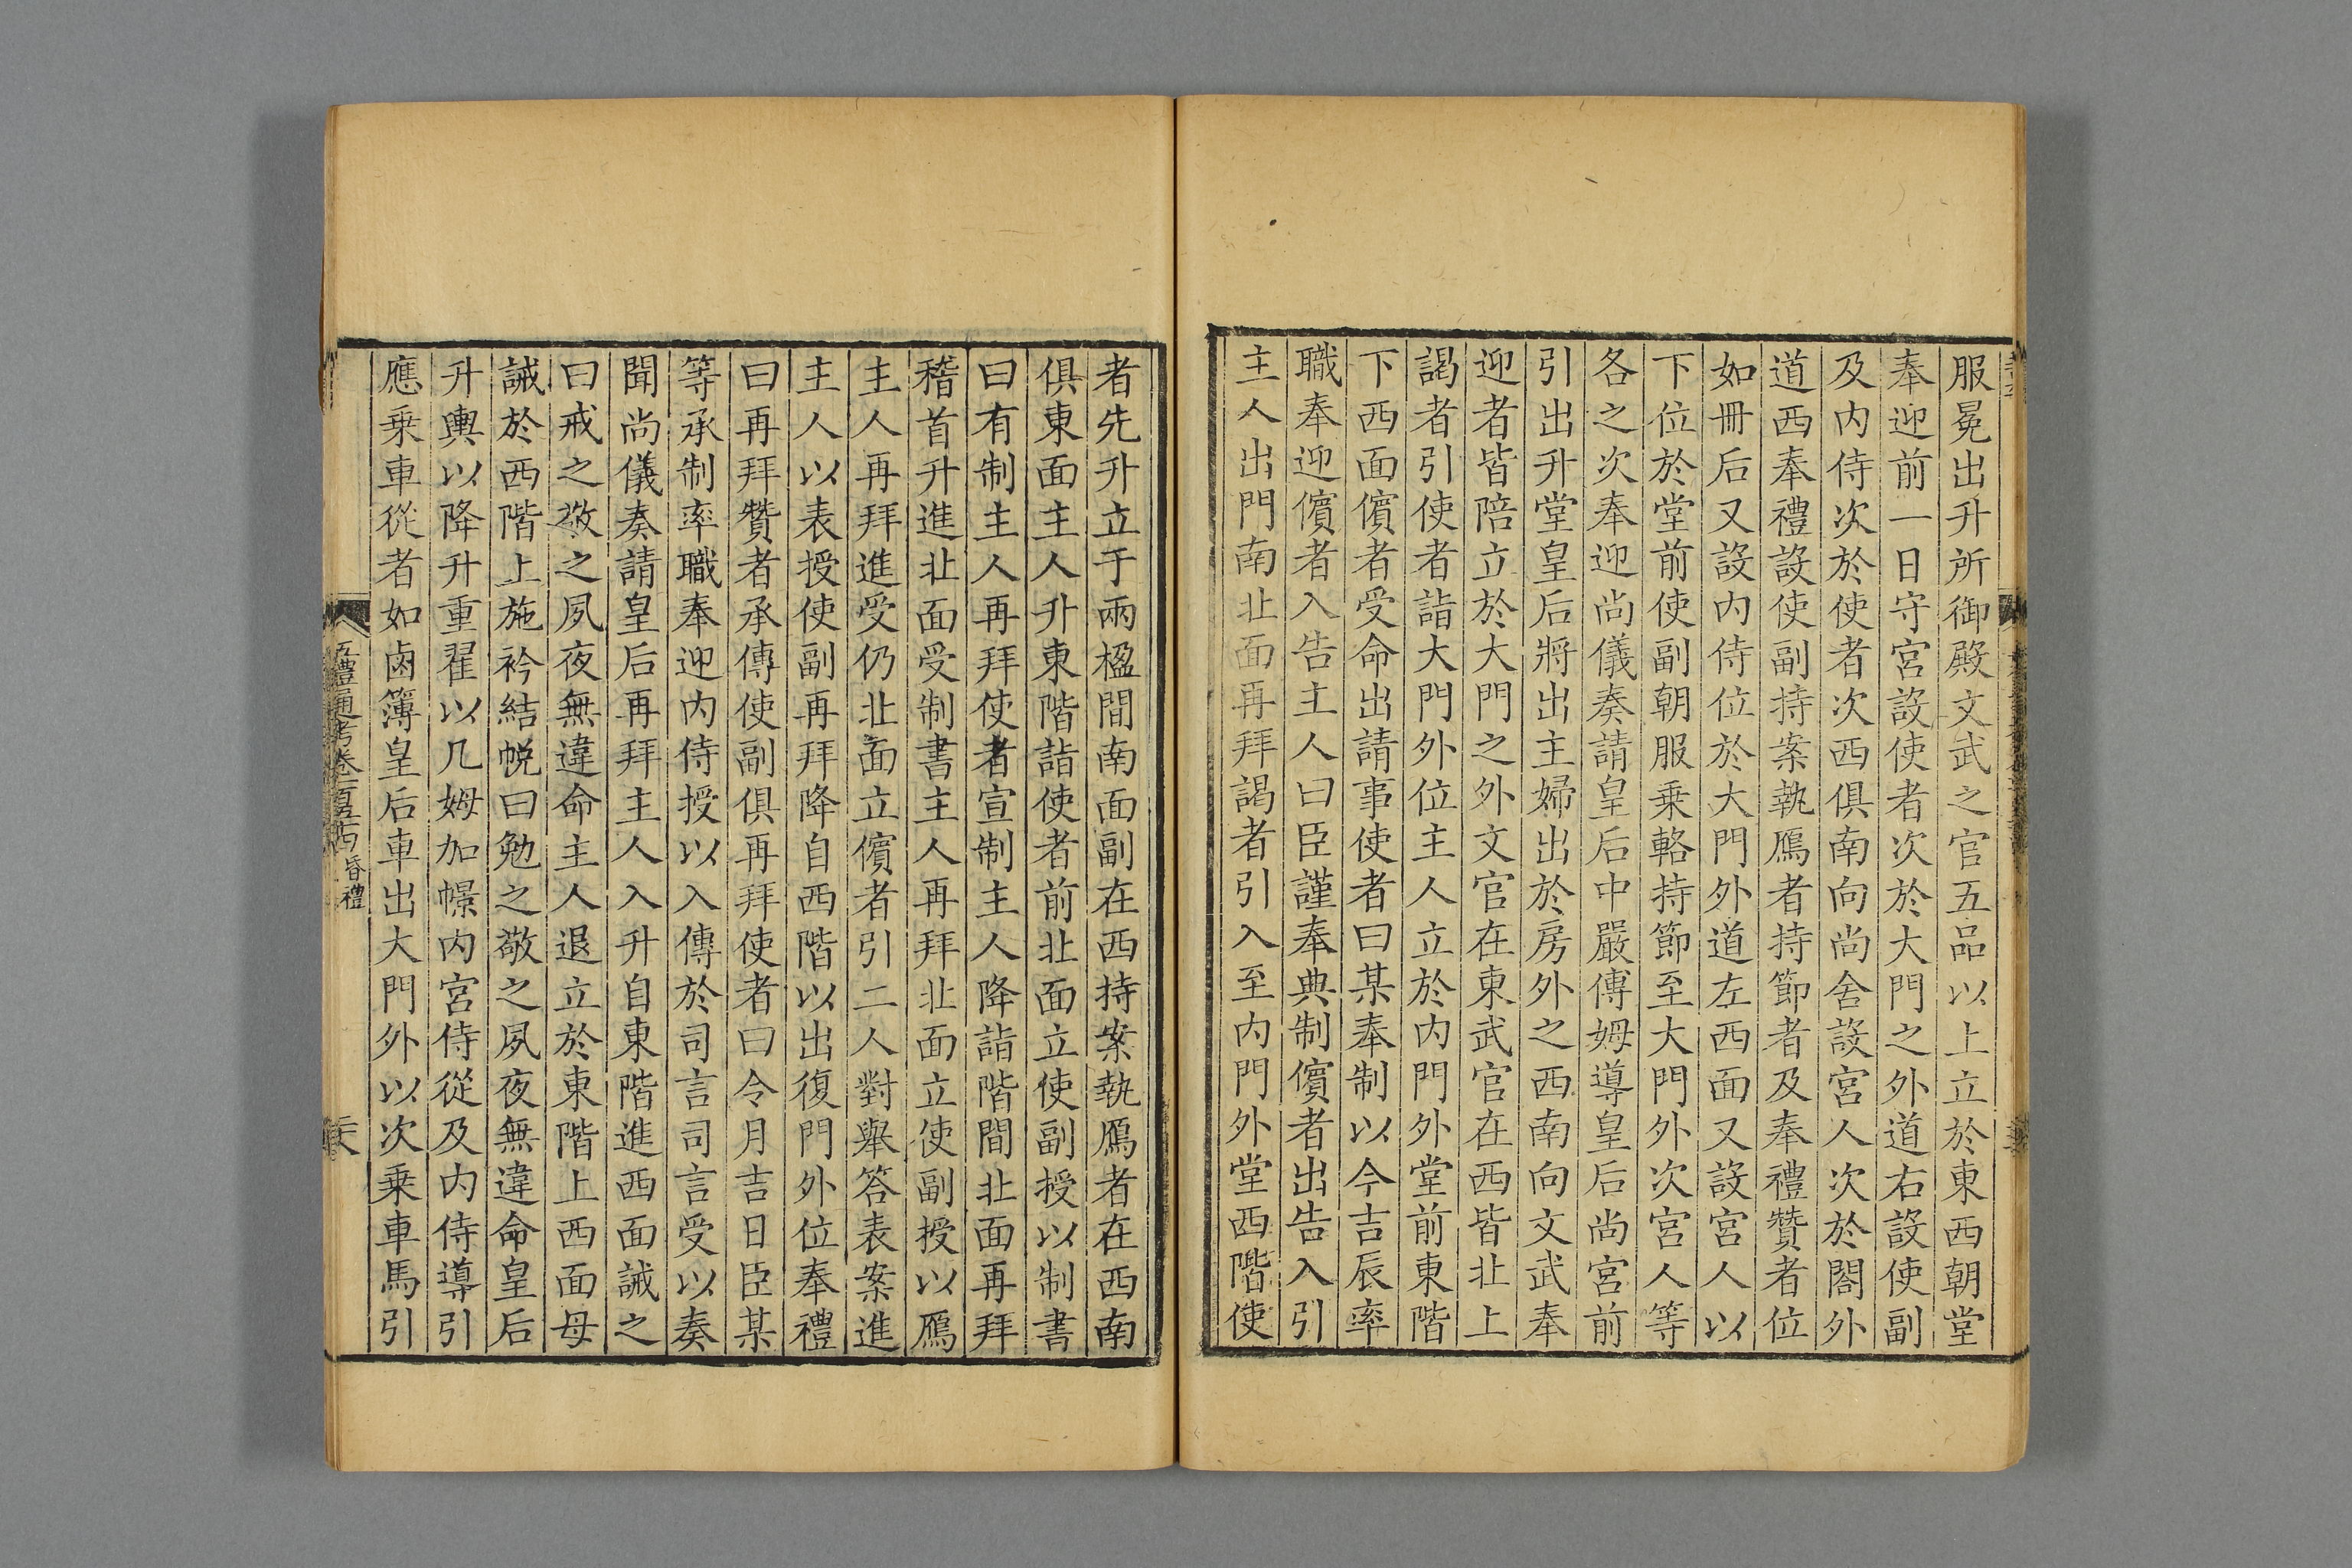 服冕出升所御殿文武之官五品以上立於東西朝堂
奉迎前一日守宮設使者次於大門之外道右設使副
及内侍次於使者次西俱南向尚舍設宮人次於閤外
道西奉禮設使副持案執鴈者持節者及奉禮贊者位
如冊后又設内侍位於大門外道左西面又設宮人以
下位於堂前使副朝服乗輅持節至大門外次宮人等
各之次奉迎尚儀奏請皇后中嚴傅姆導皇后尚宮前
引出升堂皇后將出主婦出於房外之西南向文武奉
迎者皆陪立於大門之外文官在東武官在西皆北上
謁者引使者詣大門外位主人立於内門外堂前東階
下西面儐者受命出請事使者曰某奉制以今吉辰率
職奉迎儐者入告主人曰臣謹奉典制儐者出告入引
主人出門南北面再拜謁者引入至内門外堂西階使
者先升立于兩楹間南面副在西持案執鴈者在西南
俱東面主人升東階詣使者前北面立使副授以制書
曰有制主人再拜使者宣制主人降詣階間北面再拜
稽首升進北面受制書主人再拜北面立使副授以鴈
主人再拜進受仍北面立儐者引二人對舉答表案進
主人以表授使副再拜降自西階以出復門外位奉禮
曰再拜贊者承傳使副俱再拜使者曰令月吉日臣某
等承制率職奉迎内侍授以入傳於司言司言受以奏
聞尚儀奏請皇后再拜主人入升自東階進西面誡之
曰戒之敬之夙夜無違命主人退立於東階上西面母
誡於西階上施衿結帨曰勉之敬之夙夜無違命皇后
升輿以降升重翟以几姆加幜内宮侍從及内侍導引
應乗車從者如鹵簿皇后車出大門外以次乗車馬引
五禮通考卷一百五十四 昏禮